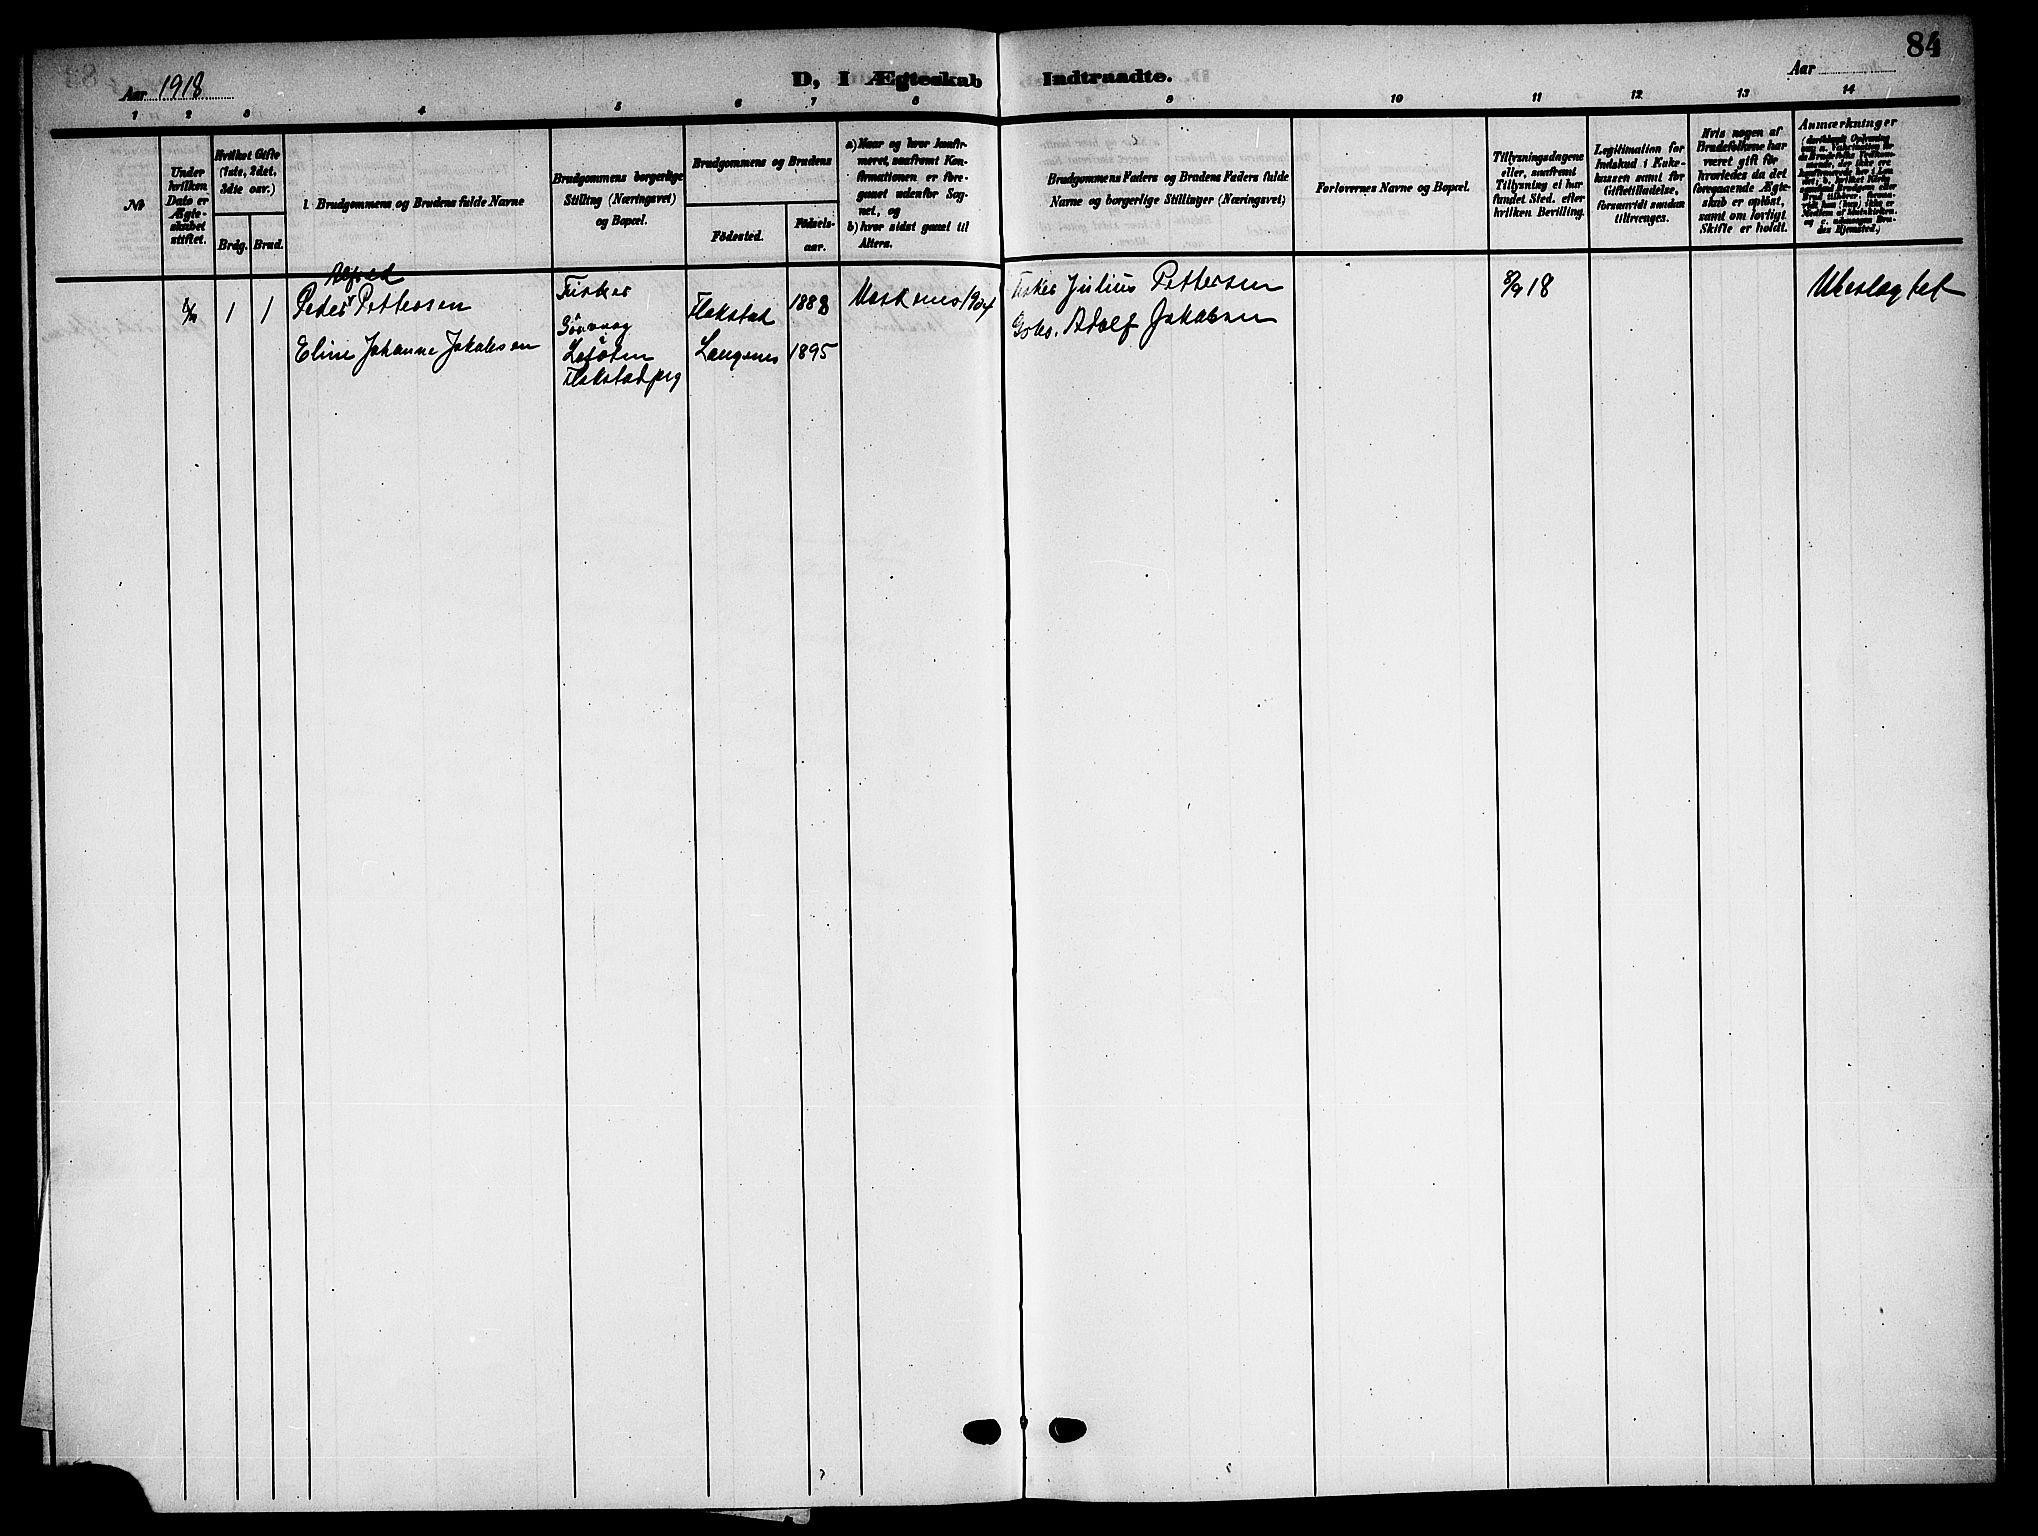 84
Aar 1918
D, I Ægteskab Indtraadte.
Aar
1 2 3 4 5 6 7 8 9 10 11 12 13 14
№
Under
hvilken
Dato er
Ægte-
skabet
stiftet.
Hvilket Gifte
(1ste, 2det,
3dte osv.)
Brdg. Brud.
Brudgommens og Brudens fulde Navne
Brudgommens borgerlige
Stilling (Næringsvei)
og Bopæl.
Brudgommens og Brudens
Födested.
Födsels-
aar.
a) Naar og hvor konfir-
meret, saafremt Kon-
firmationen er fore-
gaaet udenfor Sog-
net, og
b) hvor sidst gaaet til
Alters.
Brudgommens Faders og Brudens Faders fulde
Navne og borgerlige Stillinger (Næringsvei)
Forlovernes Navne og Bopæl.
Tillysningsdagene
eller, saafremt
Tillysning ei har
fundet Sted, efter
hvilken Bevilling.
Legitimation for
Indskud i Enke-
kassen samt for
Giftetilladelse,
forsaavidt saadan
tiltrænges.
Hvis nogen af
Brudefolkene har
været gift för
hvorledes da det
foregaaende Ægte-
skab er oplöst,
samt om lovligt
Skifte er holdt.
Anmærkninger
Alfred
1 1 Peder Pettersen
Eline Johanne Jakobsen
Fisker
Lofoten
Flakstad prg
Flakstad 1888
Langenes 1895
Moskenes 1904
Fisker Julius Pettersen
Gbr. Adolf Jakobsen
8/9 18
Ubeslagtet